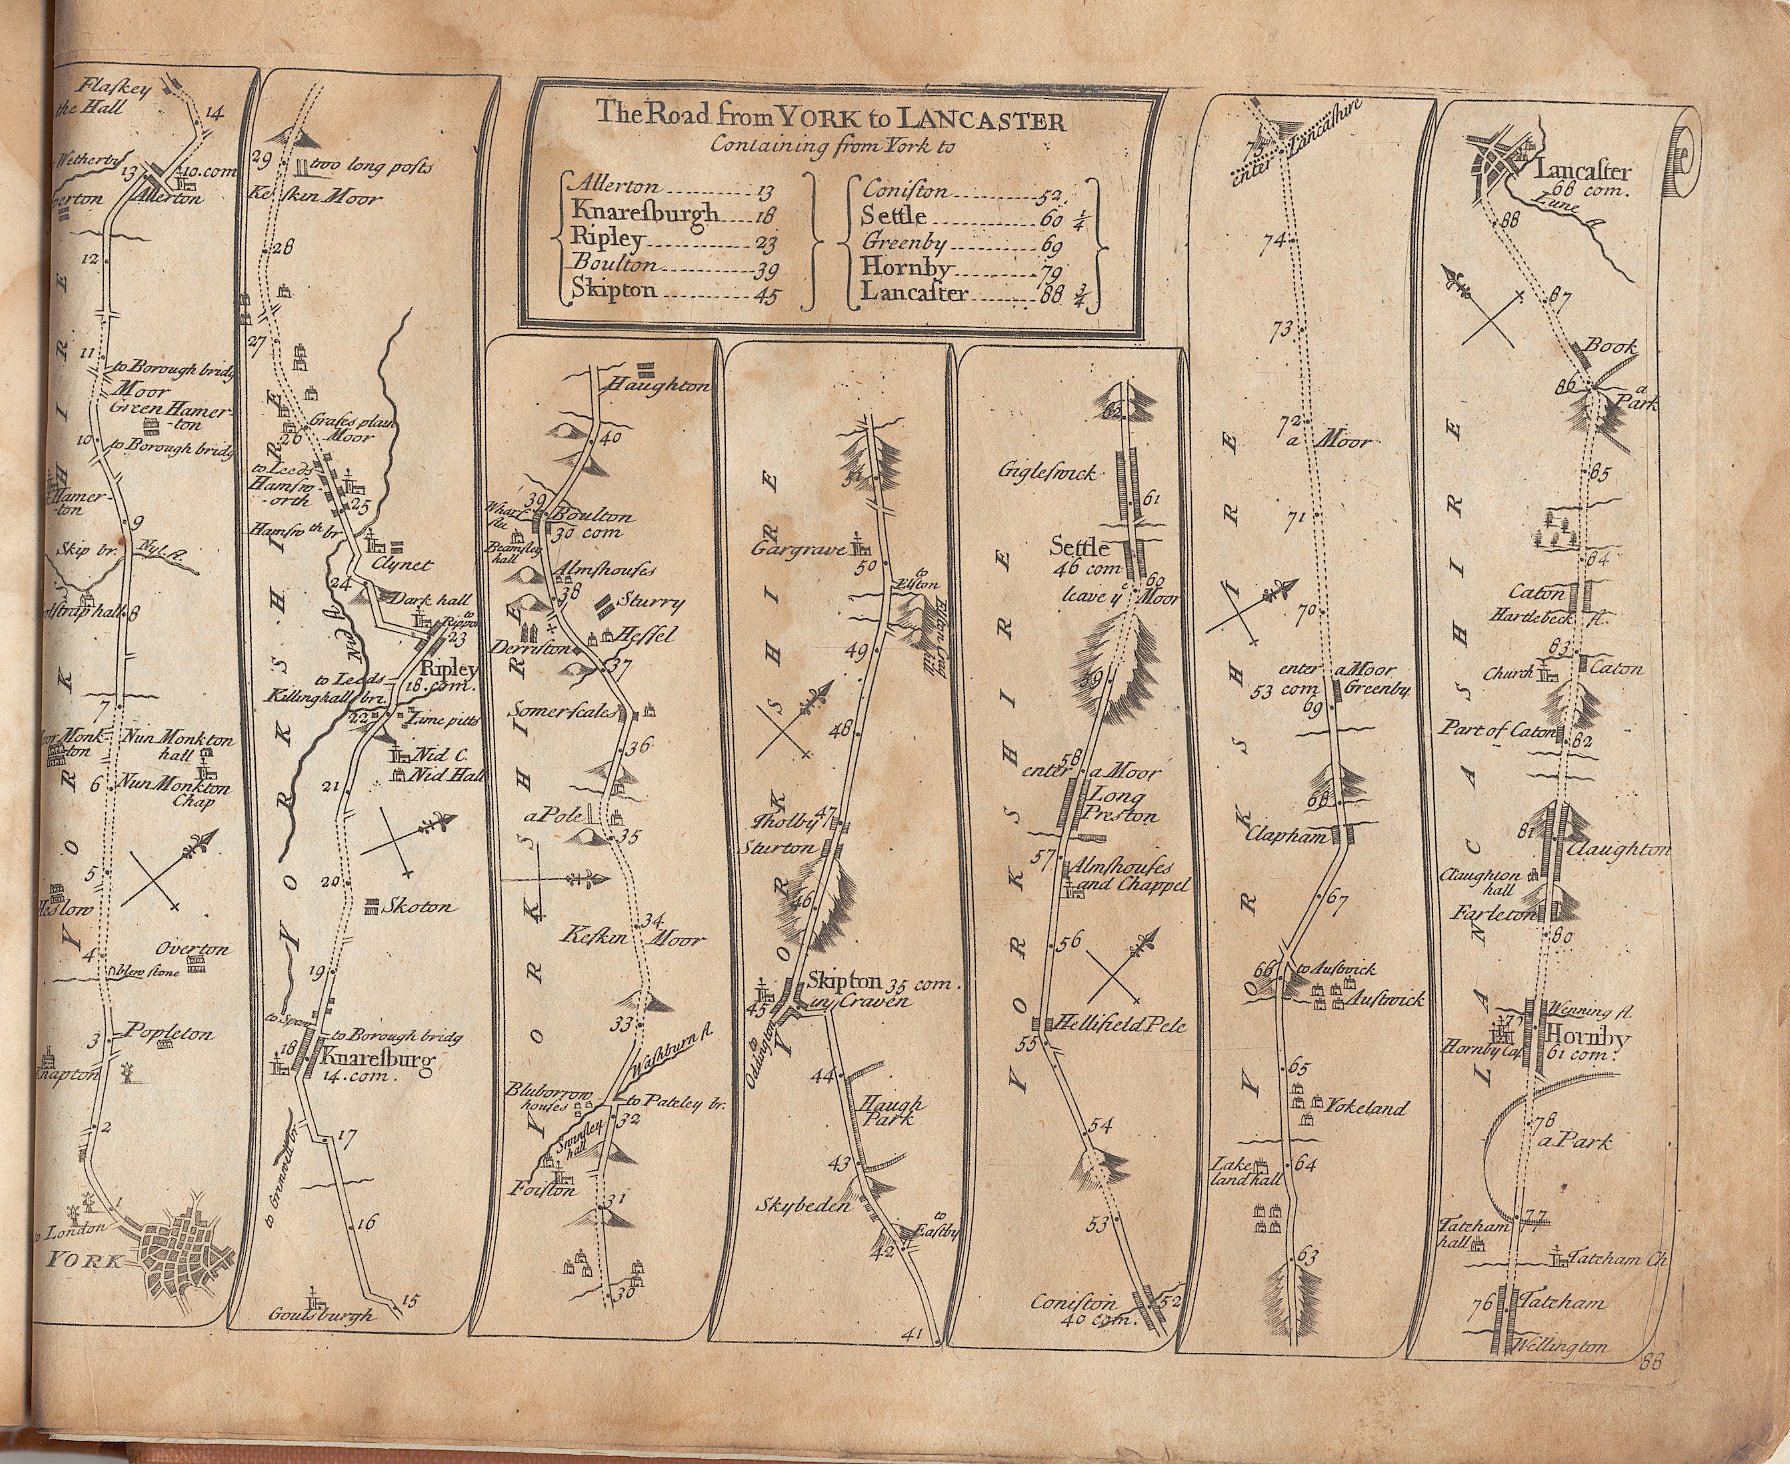 The Road from YORK to LANCASTER
Containing from York to
Allerton 13
Knaresburgh 18
Ripley 23
Boulton 39
Skipton 45
Coniston 52
Settle 60 1/4
Greenby 69
Hornby 79
Lancaster 88 3/4
Flaskey
the Hall
14
Wetherby
13
10.com
Allerton
12
11
to Borough bridg
Moor
Green Hamer-
-ton
10
to Borough bridg
Hamer-
-ton
9
Skip br.
Nyd fl
8
7
Nun Monkton
hall
6
Nun Monkton
Chap
5
4
Overton
blew stone
3
Popleton
Knapton
2
1
to London
YORK
YORKSHIRE
29
two long posts
Keskin Moor
28
27
Grases plain
Moor
26
to Leeds
Hamsw-
-orth
25
Hamsw th br
Clynet
24
Dark hall
to
Rippon
23
Ripley
18.com.
to Leeds
Killinghall br.
22
Lime pitts
Nid C.
Nid Hall
21
20
Skoton
19
to Borough bridg
18
Knaresburg
14.com.
17
16
15
Goulsburgh
YORKSHIRE
Haughton
40
39
Boulton
30 com
Beamsley
hall
Almshouses
38
Sturry
Hessel
Derriston
37
Somerscales
36
a Pole
35
34
Keskin Moor
33
Washburn fl.
Bluborrow
houses
to Pateley br.
32
Swinsley
hall
Foiston
31
30
YORKSHIRE
51
Gargrave
50
to
Elston
Elston Crag
hill
49
48
47
Tholby
Sturton
46
Skipton 35 com.
in Craven
45
to
Oddington
44
Haugh
Park
43
Skybeden
to
Eastby
42
41
YORKSHIRE
62
Gigleswick
61
Settle
46 com
60
leave y Moor
59
58
enter a Moor
Long
Preston
57
Almshouses
and Chappel
56
Hellifield Pele
55
54
53
Coniston
40 com.
52
YORKSHIRE
75
enter Lancashire
74
73
72
a Moor
71
70
enter a Moor
53 com Greenby
69
68
Clapham
67
66
to Austwick
Austwick
65
Yokeland
Lake
land hall
64
63
YORKSHIRE
Lancaster
68 com.
Lune fl
88
87
Book
86
a
Park
85
84
Caton
Hartlebeck fl.
83
Church
Caton
Part of Caton
82
81
Claughton
Claughton
hall
Farleton
80
Wenning fl.
79
Hornby
Hornby Cas
61 com.
78
a Park
77
Tateham
hall
Tateham Ch
76
Tateham
Wellington
LANCASHIRE
88